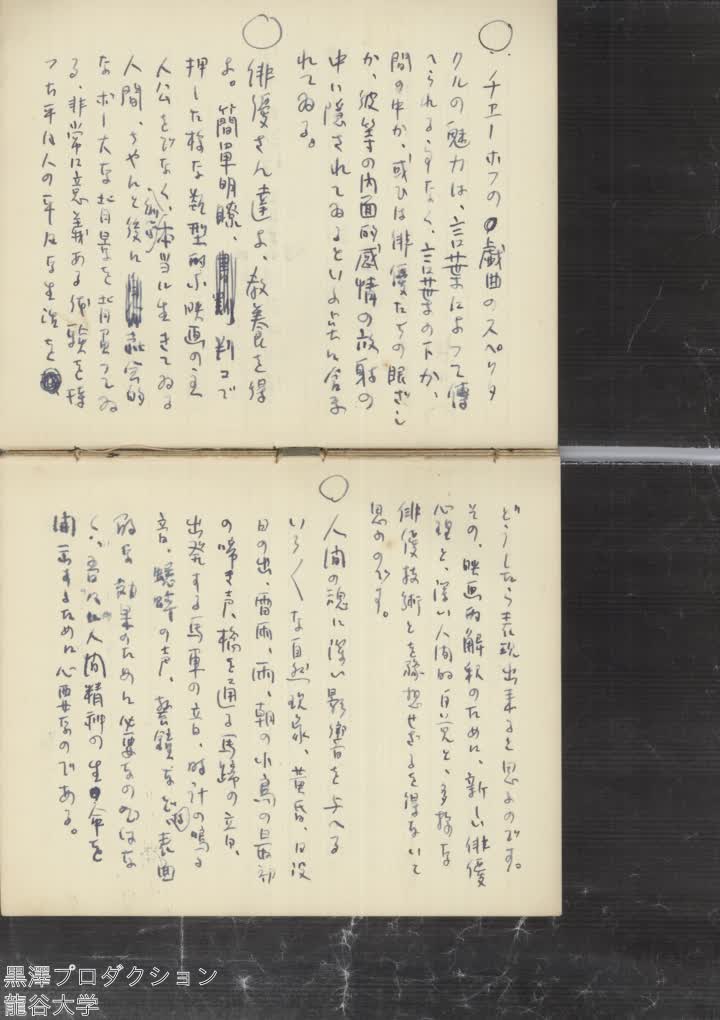 ○
チエーホフの戯曲のスペクタ
クルの魅力は、言葉によって傳
へられるのでなく、言葉の下か、
間の中か、或ひは俳優たちの眼ざし
か、彼等の内面的感情の放射の
中に隠されてゐるといふ点に含ま
れてゐる。
○
俳優さん達よ、教養を得
よ。簡單明瞭、判コで
押した様な類型的な映画の主
人公をでなく、本当に生きてゐる
人間、ちやんと後に社会的
なボー大な背景を背負つてゐ
る、非常に意義ある体験を持
つた平凡人の平凡な生活を
どうしたら表現出来ると思ふのです。
その、映画的解釈のために、新しい俳優
心理と、深い人間的自覚と、多様な
俳優技術とを豫想せざるを得ないと
思ふのです。
○
人間の魂に深い影響を与へる
いろ〱な自然現象、黄昏、日没
日の出、雷雨、雨、朝の小鳥の最初
の啼き声、橋を通る馬蹄の音、
出発する馬車の音、時計の鳴る
音、蟋蟀の声、警鐘など表面
的な効果のために必要なのではな
く、吾々が人間精神の生命を
開示するために必要なのである。
黒澤プロダクション
龍谷大学